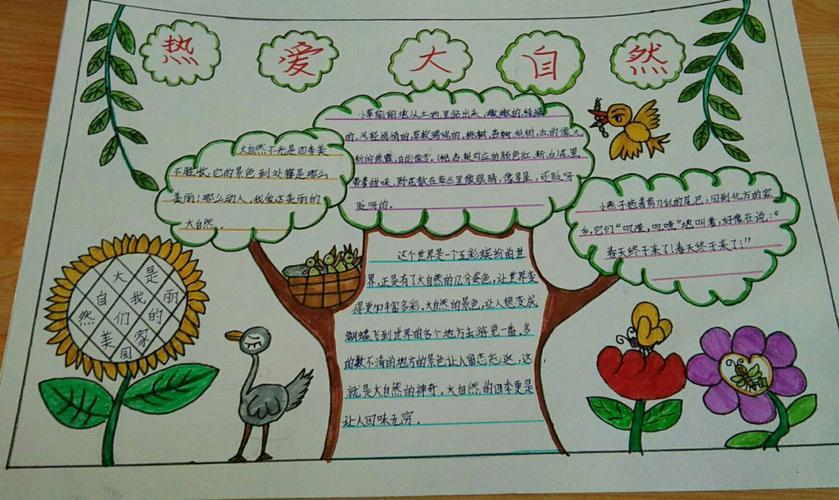 热爱大自然
大自然不光是四季美
不胜收，它的景色到处都是那么
美丽！那么动人，我爱这美丽的
大自然。
小草偷偷地从土地里钻出头，嫩嫩的绿绿
的，风轻悄悄的，草软绵绵的，桃树、杏树、梨树，红的像火
粉的像霞，白的像雪，花里
带着甜味，野花散在草丛里像眼睛，像星星，还眨呀
眨呀的。
小燕子拖着剪刀似的尾巴，回到北方的家
乡，它们“叽喳，叽喳”地叫着，好像在说：“
春天终于来了！春天终于来了！”
这个世界是一个五彩缤纷的世
界，正是有了大自然的几分姿色，让世界变
得更加丰富多彩，大自然的景色，让人想变成
蝴蝶飞到世界的各个地方去游览一番，多
的数不清的地方的景色让人留恋忘返，这
就是大自然的神奇，大自然的四季更是
让人回味无穷。
大是
自我丽
然们的
美家
国